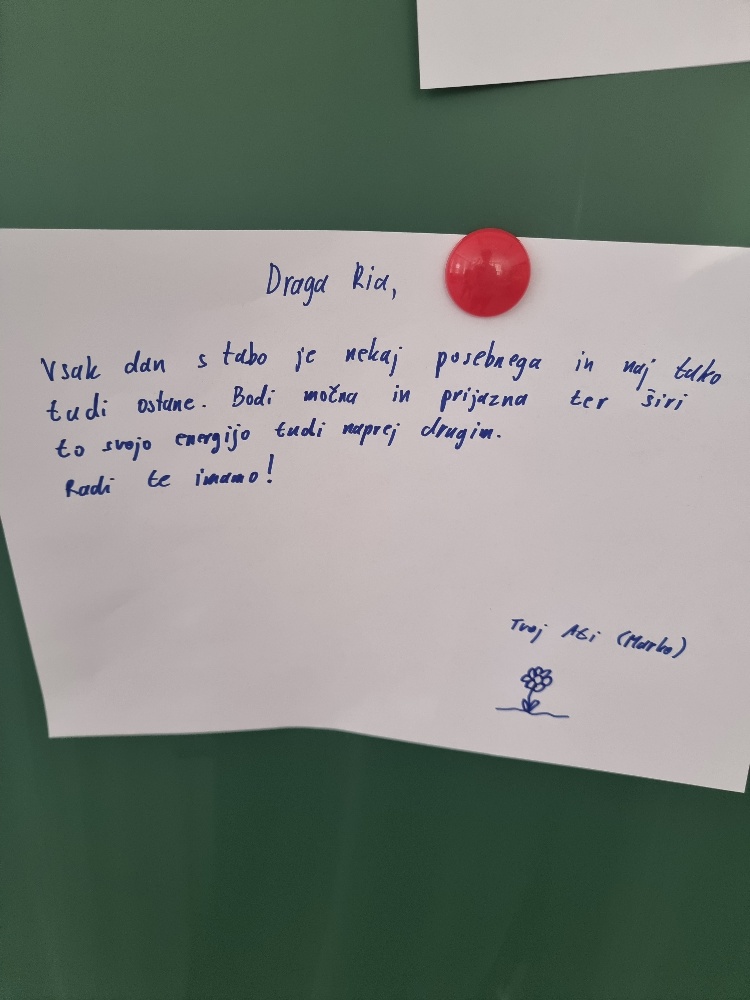 Draga Ria,
Vsak dan s tabo je nekaj posebnega in naj tako
tudi ostane. Bodi močna in prijazna ter širi
to svojo energijo tudi naprej drugim.
Radi te imamo!
Tvoj Ati (Marko)